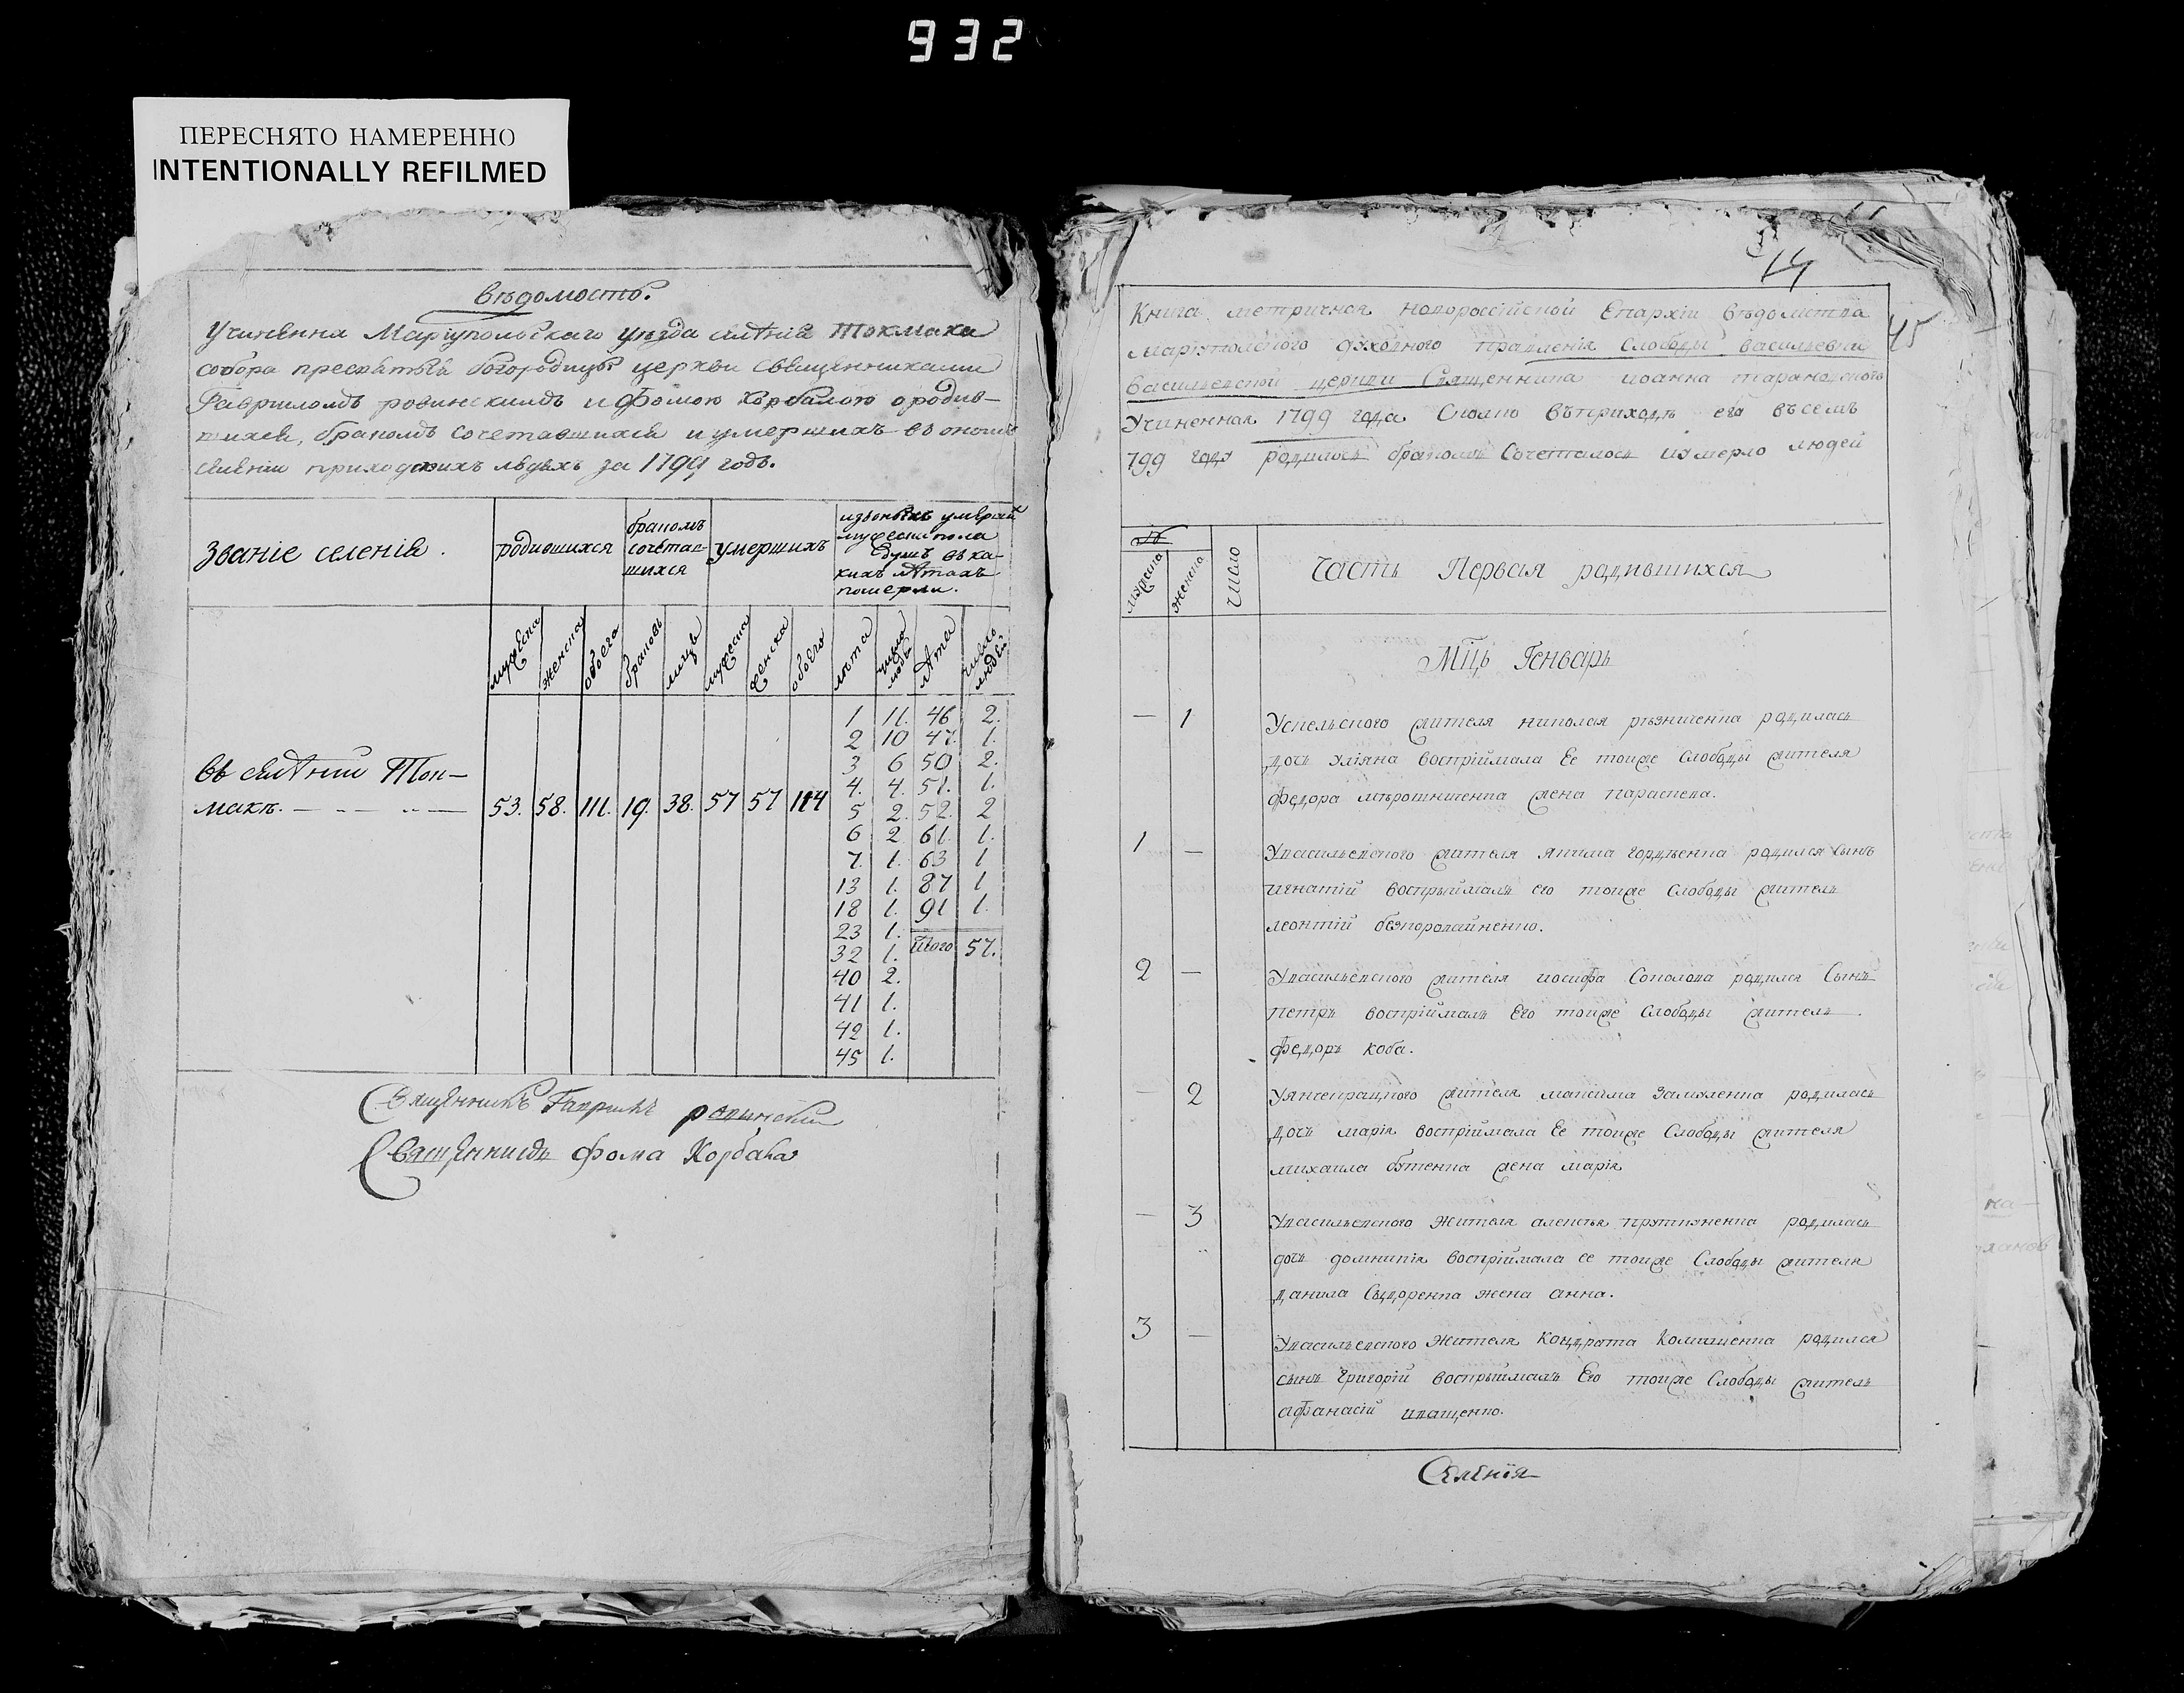 932
ПЕРЕСНЯТО НАМЕРЕННО
INTENTIONALLY REFILMED
Вѣдомость.
Учиненна Маріупольскаго уѣзда селенія Токмака
собора пресвятыя богородицы церкви священниками
Гавриломъ ровинскимъ и Фомою Корбалою ородив-
шихся, бракомъ сочетавшихся и умершихъ въ ономъ
селеніи приходскихъ людяхъ за 1799 годъ.
Званіе селенія.
родившихся
бракомъ
сочетав-
шихся
умершихъ
изъоныхъ умерш
мужеска пола
душъ въ ка-
кихъ лѣтахъ
померли.
мужеска женска обоего браковъ лицъ мужеска женска обоего лѣта число людей лѣта число людей
Въ селѣніи Ток-
макѣ. 53. 58. 111. 19. 38. 57 57 114
1 11. 46 2.
2 10 47. 1.
3 6 50 2.
4. 4. 51. 1.
5 2. 52. 2
6 2 61. 1.
7. 1. 63 1
13 1. 87 1
18 1. 91 1.
23 1.
32 1. Итого 57.
40 2.
41 1.
42 1.
45 1.
Священникъ Гаврилъ ровинскій
Священникъ фома Корбала
14
45
Книга метричная новороссійской Епархіи вѣдомства
маріупольского духовного правленія слободы васильевки
васильевской церкви Священника иоанна тарановского
Учиненная 1799 года Сколко въприходѣ его въсемъ
799 году родилось бракомъ Сочеталось иумерло людей
мужеска женска число
Часть Первая родившихся
Мцъ Генварь
— 1 Успельского жителя николая рѣзниченка родилась
дочь улїяна воспріймала Ее тоиже Слободы жителя
федора мѣрошниченка жена параскева.
1 — Увасильевского жителя якима гордѣенка родился сынъ
игнатій воспрыймалъ его тоиже Слободы житель
леонтій безпоролайненко.
2 — Увасильевского жителя иосифа Соколова родился Сынъ
петръ воспріймалъ Его тоиже Слободы житель
федоръ коба.
— 2 Уянчекрацкого жителя максима Замуленка родилась
дочь марія воспріймала Ее тоиже Слободы жителя
михаила бутенка жена марія
— 3 Увасильевского Жителя алексѣя родилась
дочь домникія воспріймала ее тоиже Слободы жителя
данила Сыдоренка жена анна.
3 — Увасильевского Жителя Кондрата родился
сынъ григорій воспрыймалъ Его тоиже Слободы житель
афанасій иващенко.
Селенія